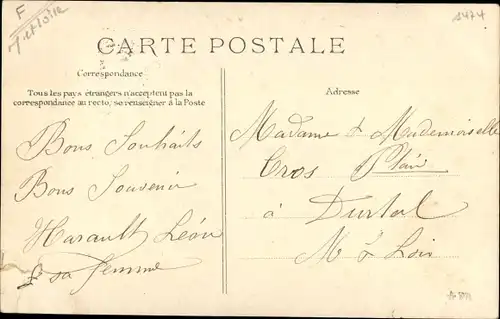 F
1474
CARTE POSTALE
Correspondance
Tous les pays étrangers n'acceptent pas la
correspondance au recto, se renseigner à la Poste
Bons Souhaits
Bons Souvenir
Harault Léon
& sa femme
Adresse
Madame & Mademoiselle
Cros
à Durtal
M & Loir